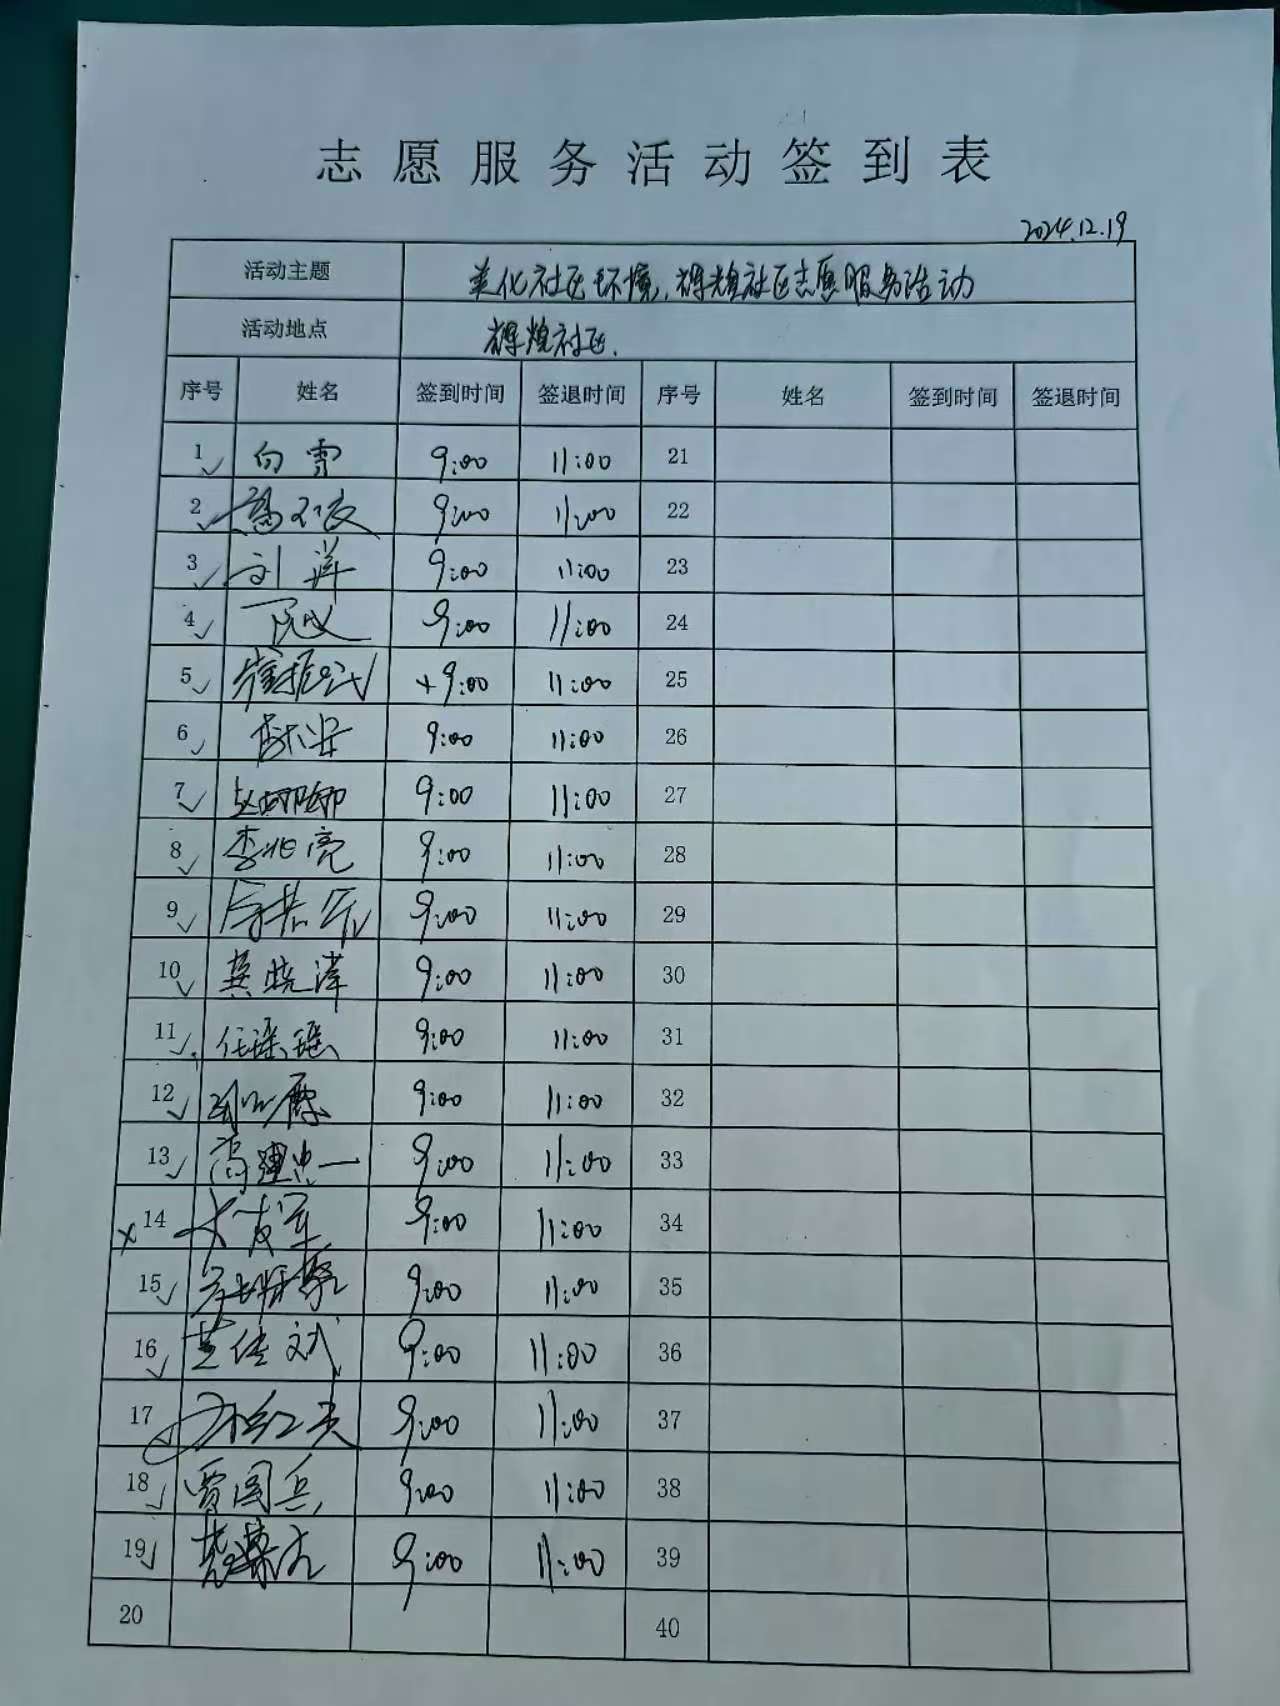 志愿服务活动签到表
2024.12.19
活动主题 美化社区环境,辉煌社区志愿服务活动
活动地点 辉煌社区.
序号 姓名 签到时间 签退时间 序号 姓名 签到时间 签退时间
1 ✓ 向雪 9:00 11:00 21
2 ✓ 9:00 11:00 22
3 ✓ 刘洋 9:00 11:00 23
4 ✓ 9:00 11:00 24
5 ✓ 9:00 11:00 25
6 ✓ 9:00 11:00 26
7 ✓ 赵娜娜 9:00 11:00 27
8 ✓ 李兆亮 9:00 11:00 28
9 ✓ 9:00 11:00 29
10 ✓ 龚晓泽 9:00 11:00 30
11 ✓ 任瑶瑶 9:00 11:00 31
12 ✓ 9:00 11:00 32
13 ✓ 高建忠 9:00 11:00 33
×14 9:00 11:00 34
15 ✓ 9:00 11:00 35
16 ✓ 9:00 11:00 36
17 ✓ 9:00 11:00 37
18 ✓ 贾国兵 9:00 11:00 38
19 ✓ 9:00 11:00 39
20 40